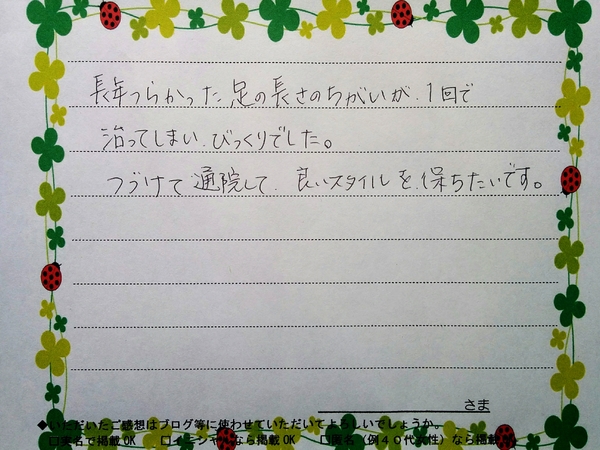 長年つらかった足の長さのちがいが、1回で
治ってしまい、びっくりでした。
つづけて通院して、良いスタイルを保ちたいです。
さま
◆いただいたご感想はブログ等に使わせていただいてよろしいでしょうか。
□実名で掲載OK □イニシャルなら掲載OK □匿名（例40代女性）なら掲載